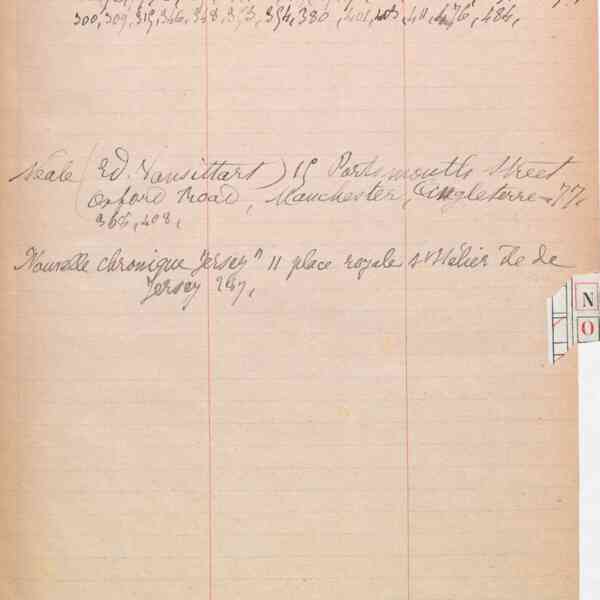 300, 309, 319, 346, 348, 353, 354, 380, 401, 403, 411, 476, 484,
Neale (Ed. Vansittart) 15 Portsmouth Street
Oxford Road, Manchester, Angleterre 77,
365, 408,
Nouvelle chronique Jersey" 11 place royale St Hélier Ile de
Jersey 287,
N
O